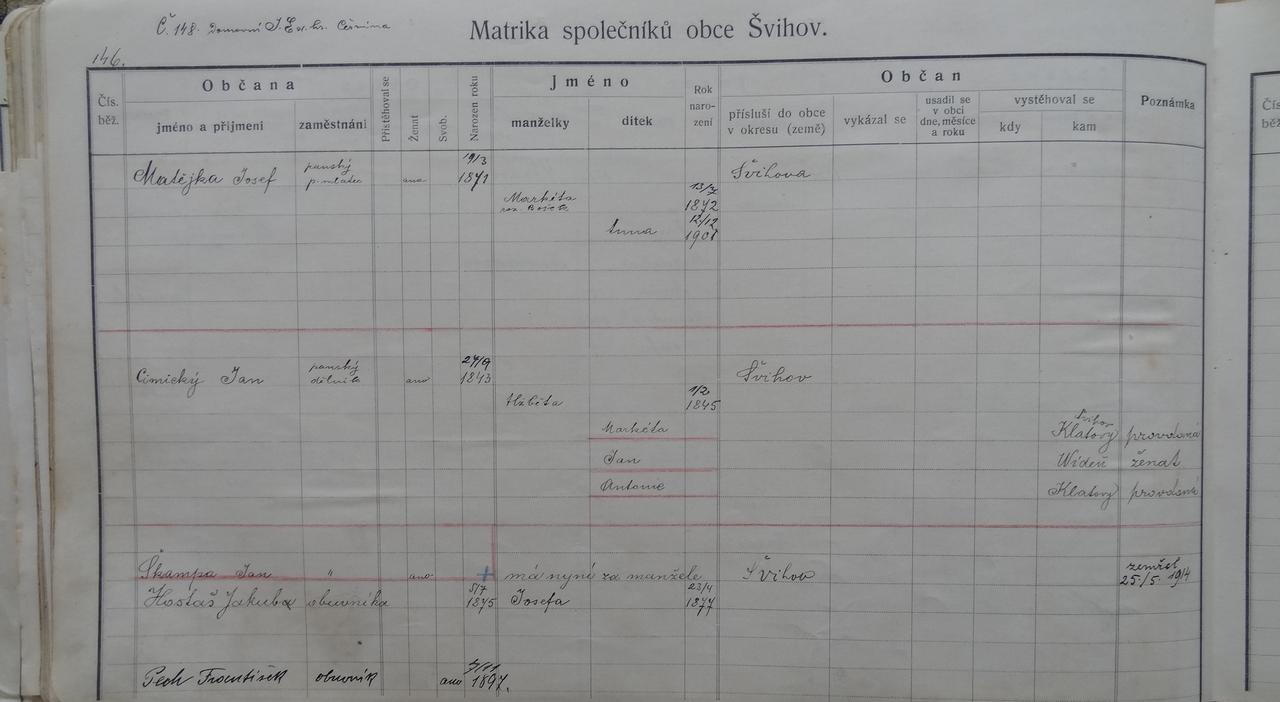 Č. 148. Domovní
Matrika společníků obce Švihov.
146.
Občana
Jméno
Občan
Čís. běž.
jméno a příjmení
zaměstnání
Přistěhoval se
Ženat
Svob.
Narozen roku
manželky
dítek
Rok naro- zení
přísluší do obce v okresu (země)
vykázal se
usadil se v obci dne, měsíce a roku
vystěhoval se
kdy
kam
Poznámka
Čís běž
19/3
Matějka Josef panský ano 1871 Švihova
Markéta 13/7 1872
Anna 12/12 1901
27/9
Cimický Jan panský dělník ano 1843 Švihov
Alžběta 1/2 1845
Švihov
Markéta Klatovy provdaná
Jan Wídeň ženat
Antonie Klatovy provdaná
Škampa Jan " ano má nyní za manžele Švihov zemřel 25./5. 1914
5/7 23/4
Hostaš Jakuba obuvníka 1875 Josefa 1877
Pech František obuvník ano 1897.